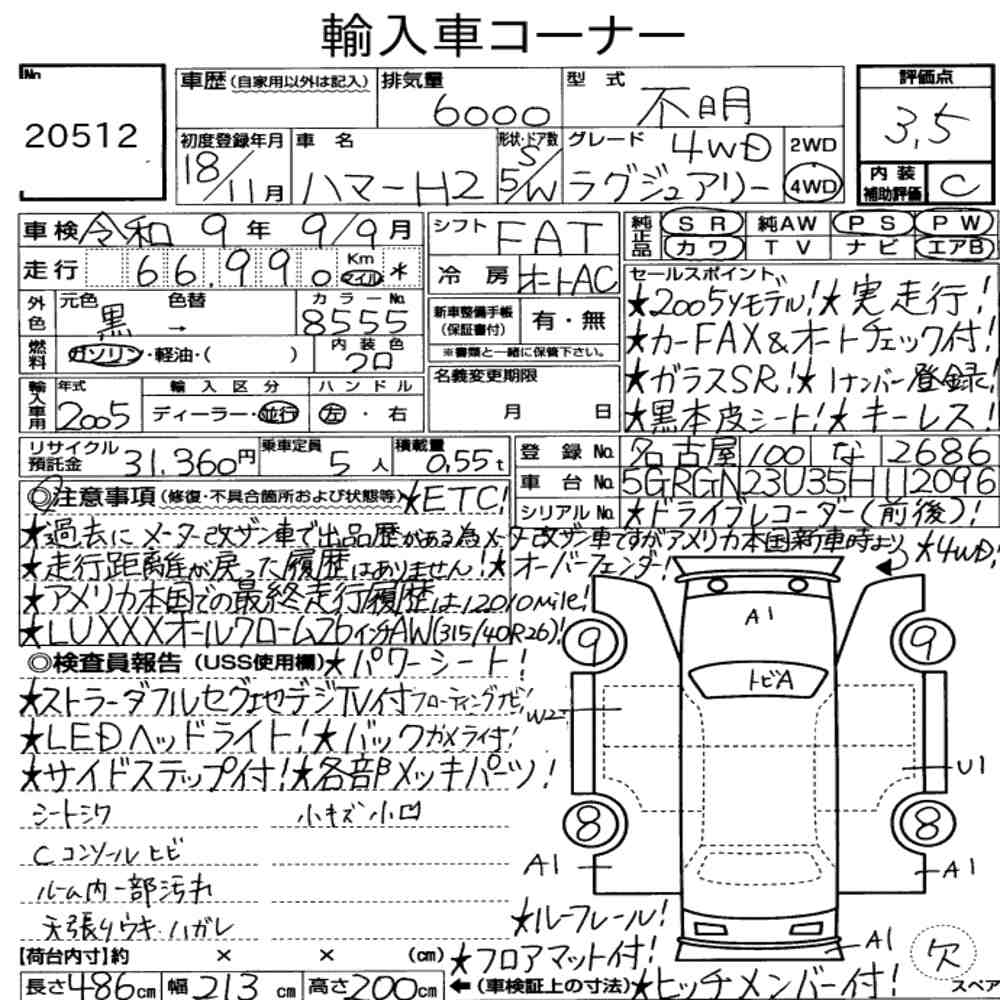 輸入車コーナー
No.
20512
車歴(自家用以外は記入)
排気量
6000
型 式
不明
評価点
3.5
初度登録年月
18/11月
車 名
ハマーH2
形状・ドア数
5/W
グレード
4WD
ラグジュアリー
2WD
4WD
内 装
補助評価
C
車検 令和 9年 9/9月
走行 66,990 Km マイル *
シフト FAT
冷 房 オートAC
純正品
SR 純AW PS PW
カワ TV ナビ エアB
外色
元色 黒 → 色替
カラーNo.
8555
燃料
ガソリン・軽油・( )
内装色
クロ
新車整備手帳
(保証書付)
有・無
※書類と一緒に保管下さい。
セールスポイント
★2005yモデル!★実走行!
★カーFAX&オートチェック付!
★ガラスSR!★1ナンバー登録!
★黒本皮シート!★キーレス!
輸入車用
年式
2005
輸 入 区 分
ディーラー・並行
ハ ン ド ル
左・右
名義変更期限
月 日
リサイクル
預託金 31,360円
乗車定員
5人
積載量
0.55t
登 録 No. 名古屋 100 な 2686
車 台 No. 5GRGN23U35H112096
シリアルNo. ★ドライブレコーダー(前後)!
◎注意事項(修復・不具合箇所および状態等)★ETC!
★過去にメーター改ザン車で出品歴がある為メーター改ザン車ですがアメリカ本国新車時より
★走行距離が戻った履歴はありません!★オーバーフェンダー! ★4WD!
★アメリカ本国での最終走行履歴は12010mile!
★LUXXXオールクローム26インチAW(315/40R26)!
◎検査員報告(USS使用欄)★パワーシート!
★ストラーダフルセグ地デジTV付フローティングナビ!
★LEDヘッドライト!★バックカメラ付!
★サイドステップ付!★各部メッキパーツ!
シートシワ 小キズ小凹
Cコンソールヒビ
ルーム内一部汚れ
天張りウキ・ハガレ
A1
トビA
9
9
W2
U1
8
8
A1
A1
A1
★ルーフレール!
★フロアマット付!
欠
スペア
【荷台内寸】約 × × (cm)
長さ486cm 幅213cm 高さ200cm ←(車検証上の寸法)★ヒッチメンバー付!